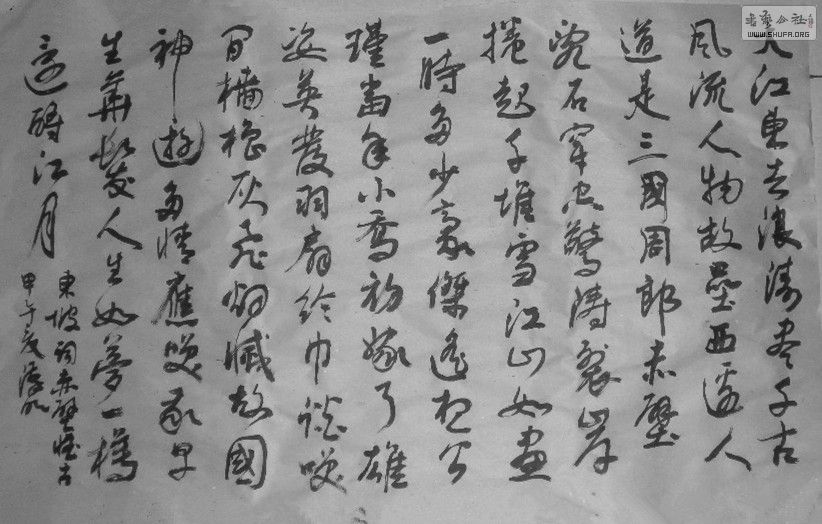 大江東去浪濤盡千古
風流人物故壘西邊人
道是三國周郎赤壁
亂石穿空驚濤裂岸
捲起千堆雪江山如畫
一時多少豪傑遙想公
瑾當年小喬初嫁了雄
姿英發羽扇綸巾談笑
間檣櫓灰飛煙滅故國
神遊多情應笑我早
生華髮人生如夢一樽
還酹江月
東坡詞赤壁懷古
甲午夏
書藝公社
WWW.SHUFA.ORG